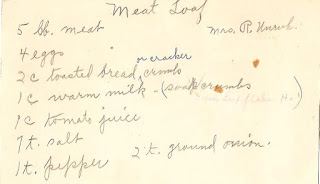 Meat Loaf
5 lb. meat
Mrs. P. Unruh.
4 eggs
or cracker
2 c toasted bread crumbs
1 c warm milk - (soak crumbs)
1 c tomato juice
7 t. salt
1 t. pepper
2 t. ground onion.